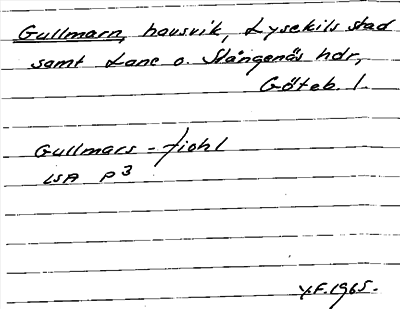 Gullmarn, havsvik, Lysekils stad
samt Lane o. Stångenäs hdr,
Göteb. l.
Gullmars-fiohl
LSA P3
Y.F. 1965.